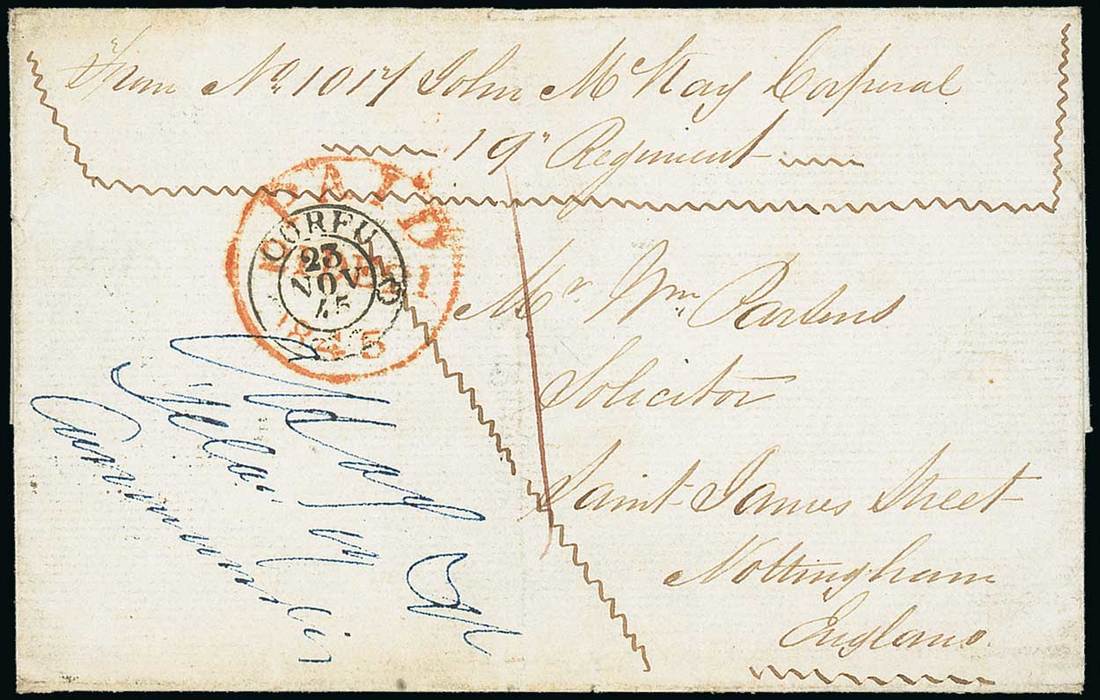 From No 1017 John McKay Corporal
19" Regiment
PAID
1845
CORFU
23
NOV
45
Mr. Wm. Parsons
Solicitor
Saint James Street
Nottingham
England